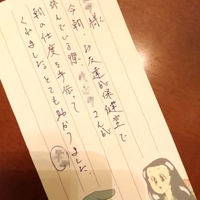 様
今朝、お友達が保健室で
休んでいる際、さんが
朝の仕度を手伝って
くれました。とても助かりました。